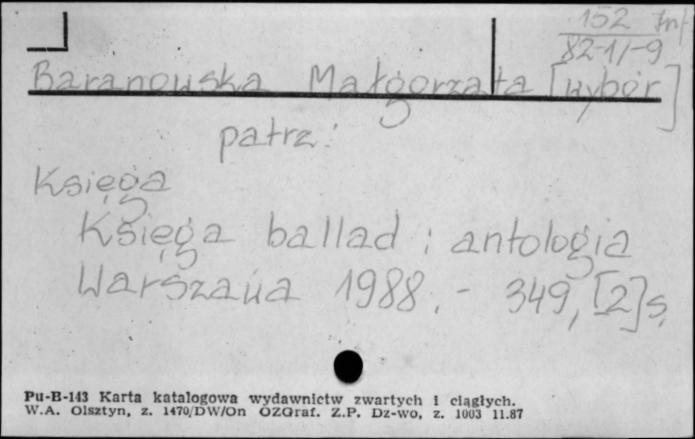 152 Inf
82-1/-9
Baranowska Małgorzata [wybór]
patrz:
Księga
Księga ballad : antologia
Warszawa 1988. - 349, [2] s.
Pu-B-143 Karta katalogowa wydawnictw zwartych i ciągłych.
W.A. Olsztyn, z. 1470/DW/On OZGraf. Z.P. Dz-wo, z. 1003 11.87